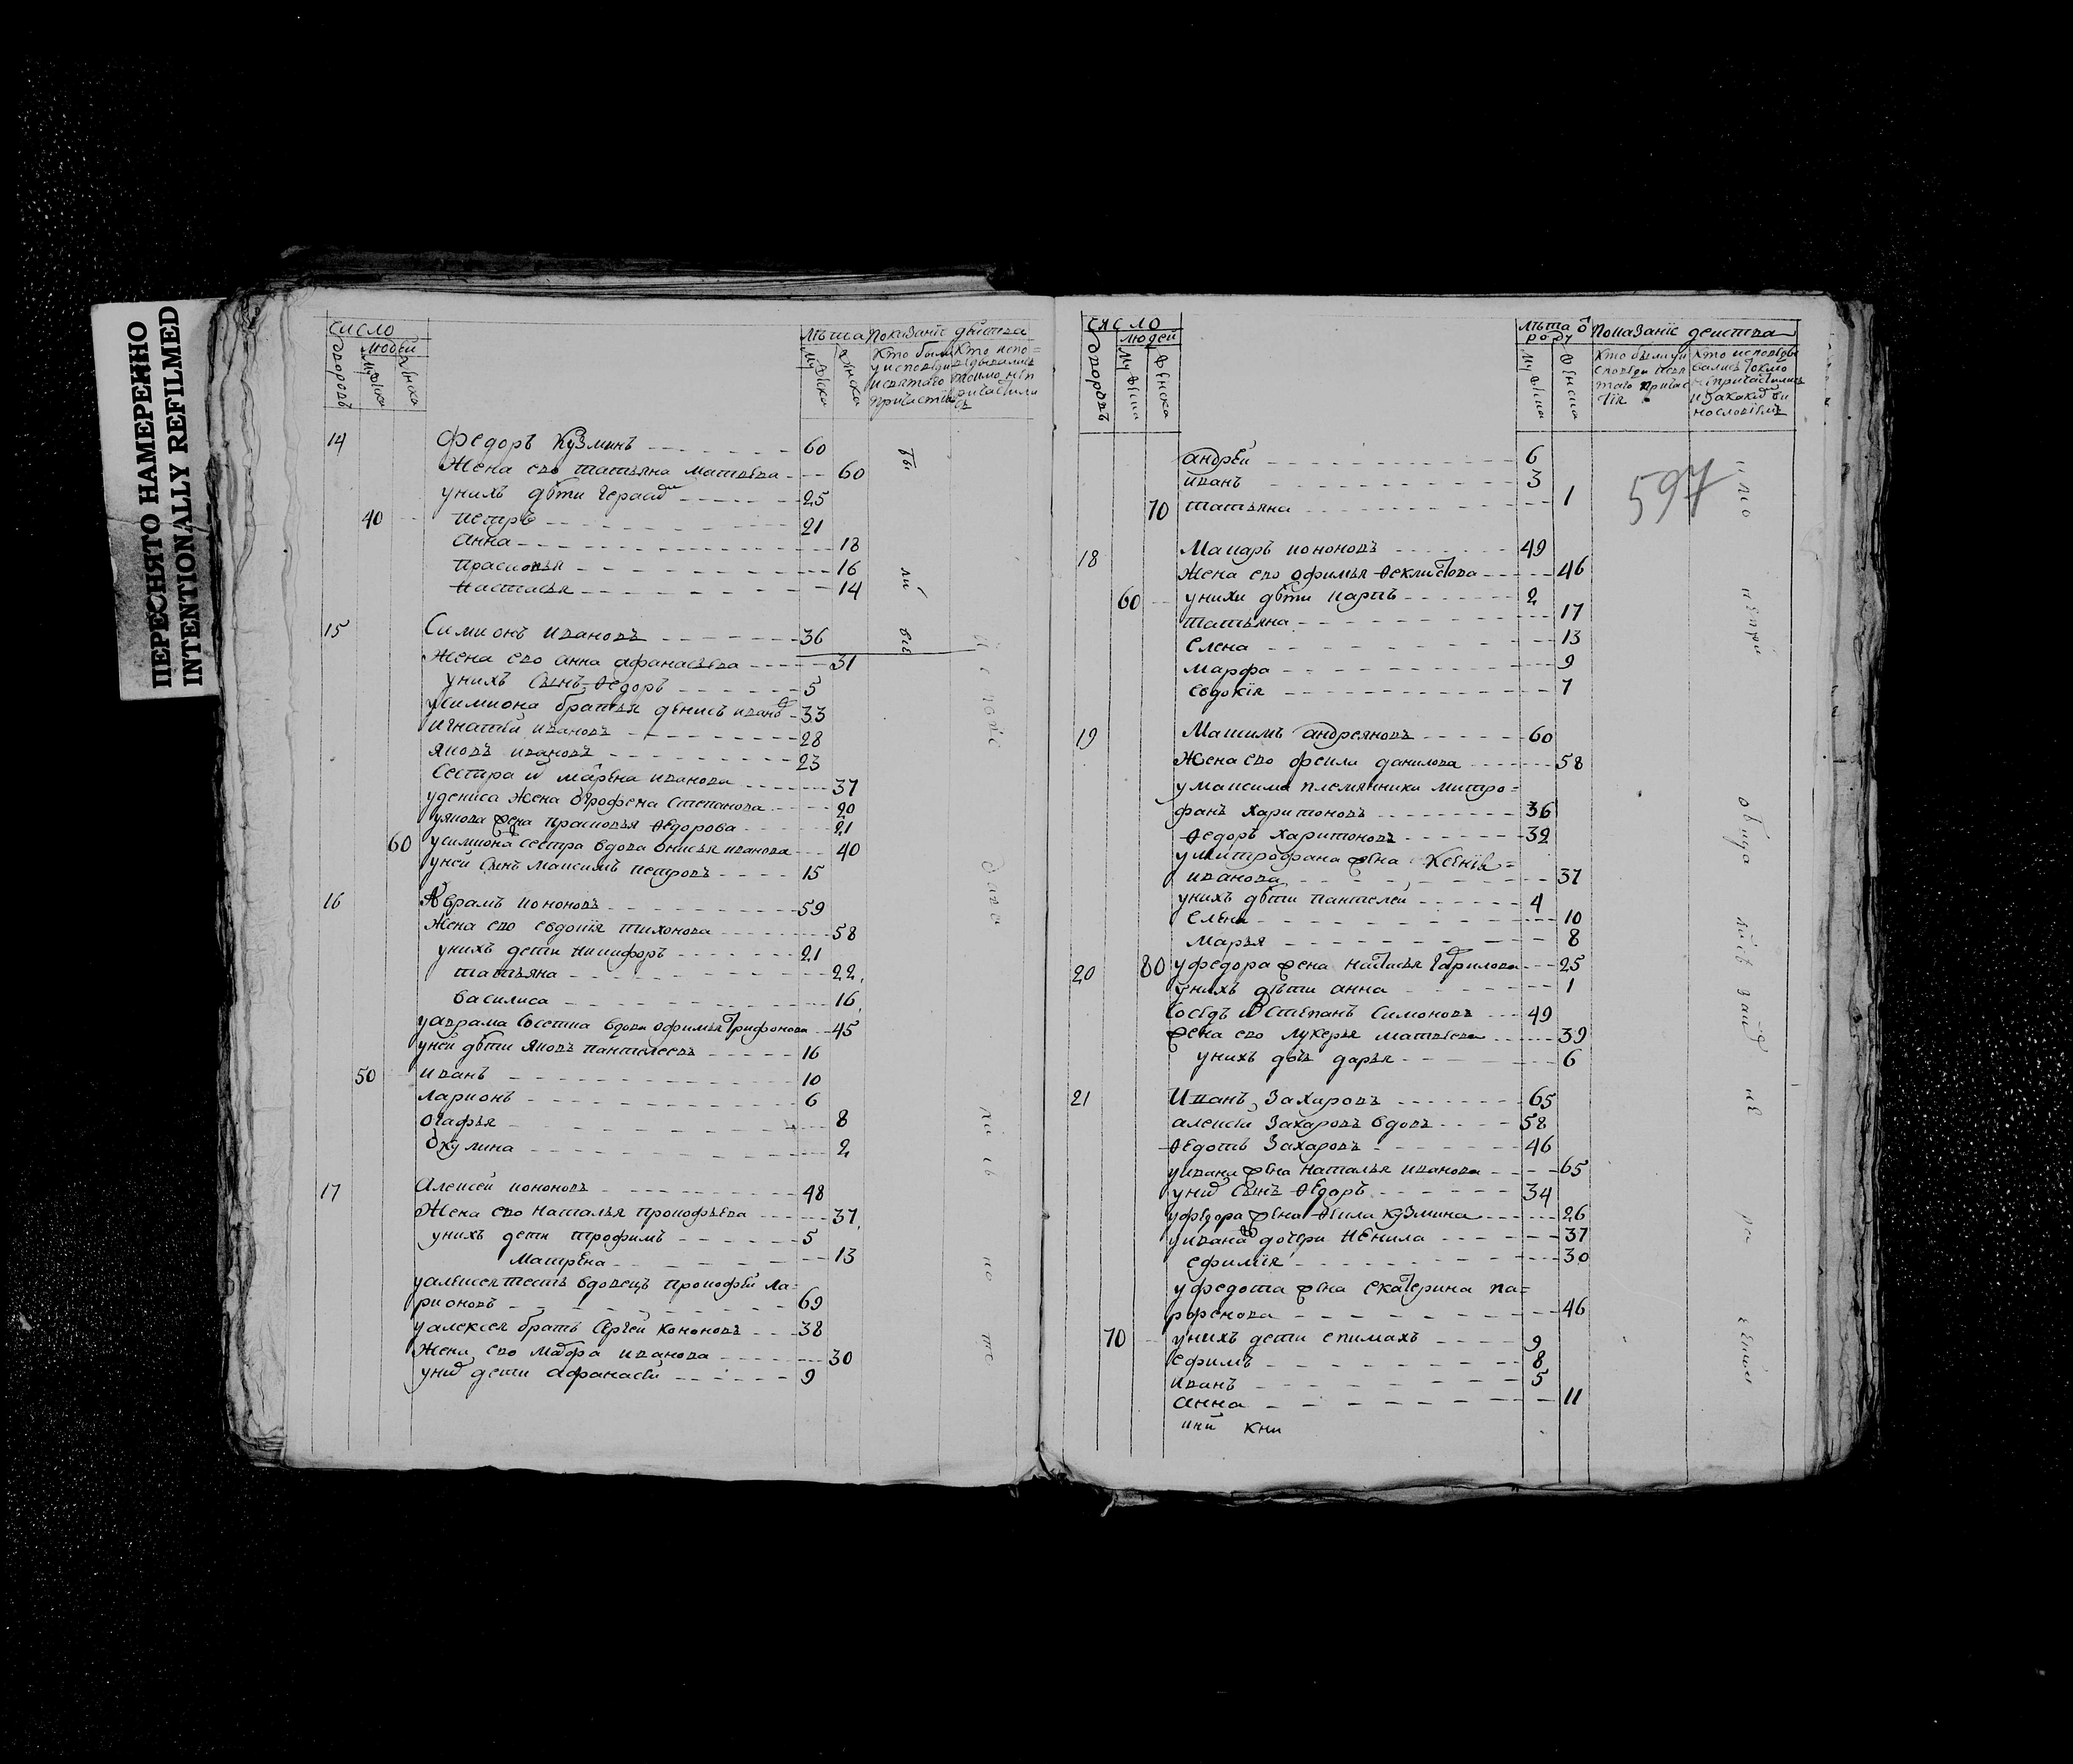 ПЕРЕСНЯТО НАМЕРЕННО
INTENTIONALLY REFILMED
число
людей
дворовъ
мужска
женска
лѣта
Показаніе действа
мужска
женска
Кто были у исповеди и святаго причастія
Кто исповедывались токмо не причастились
14 федоръ Кузминъ 60
Жена ево татьяна матвѣева 60
у нихъ дѣти герасимъ 25
40 петръ 21
анна 18
прасковья 16
настасья 14
15 Симионъ ивановъ 36
Жена ево анна афанасьева 31
у нихъ сынъ ѳедоръ 5
у симиона братья денисъ ивановъ 33
игнатей ивановъ 28
яковъ ивановъ 23
Сестра их марѳна иванова 37
у дениса жена огрофена степанова 20
у якова жена прасковья ѳедорова 21
60 у симиона сестра вдова онисья иванова 40
у ней сынъ максимъ петровъ 15
16 Аврамъ кононовъ 59
Жена ево евдокия тихонова 58
у нихъ дети никифоръ 21
татьяна 22
василиса 16
у аврама вдова офимья трифонова 45
у ней дѣти яковъ пантелеевъ 16
50 иванъ 10
ларионъ 6
огафья 8
окулина 2
17 Алексей кононовъ 48
Жена ево наталья прокофьева 37
у нихъ дети трофимъ 5
Матрена 13
у алексея тесть вдовецъ прокофей ла=
рионовъ 69
у алексея братъ сергей Кононовъ 38
Жена ево мавра иванова 30
у них дети афанасей 9
бы
ли
вси
число
людей
дворовъ
мужска
женска
лѣта ѿ роду
мужска
женска
показаніе действа
Кто были у исповеди и святаго причастія
Кто исповедывались токмо не причастились и за какою виною
597
андрей 6
иванъ 3
70 татьяна 1
18 Макаръ кононовъ 49
Жена ево офимья ѳеклистова 46
60 у нихъ дѣти карпъ 2
татьяна 17
Елена 13
марфа 9
евдокія 7
19 Максимъ андреяновъ 60
Жена ево фекла данилова 58
у максима племянники митро=
фанъ харитоновъ 36
ѳедоръ харитоновъ 32
у митрофана жена Ксенія
иванова 37
у нихъ дѣти пантелей 4
Елена 10
марья 8
20 80 у федора жена настасья гаврилова 25
у нихъ дѣти анна 1
сосѣдъ их степанъ симоновъ 49
жена ево лукерья матвѣева 39
у нихъ дочь дарья 6
21 Иванъ Захаровъ 65
алексей Захаровъ вдовъ 58
ѳедотъ Захаровъ 46
у ивана жена наталья иванова 65
у них сынъ ѳедоръ 34
у федора жена ѳекла кузмина 26
у ивана дочери ненила 37
ефимія 30
у федота жена екатерина па=
рфенова 46
70 у нихъ дети епимахъ 9
ефимъ 8
иванъ 5
анна 11
кни